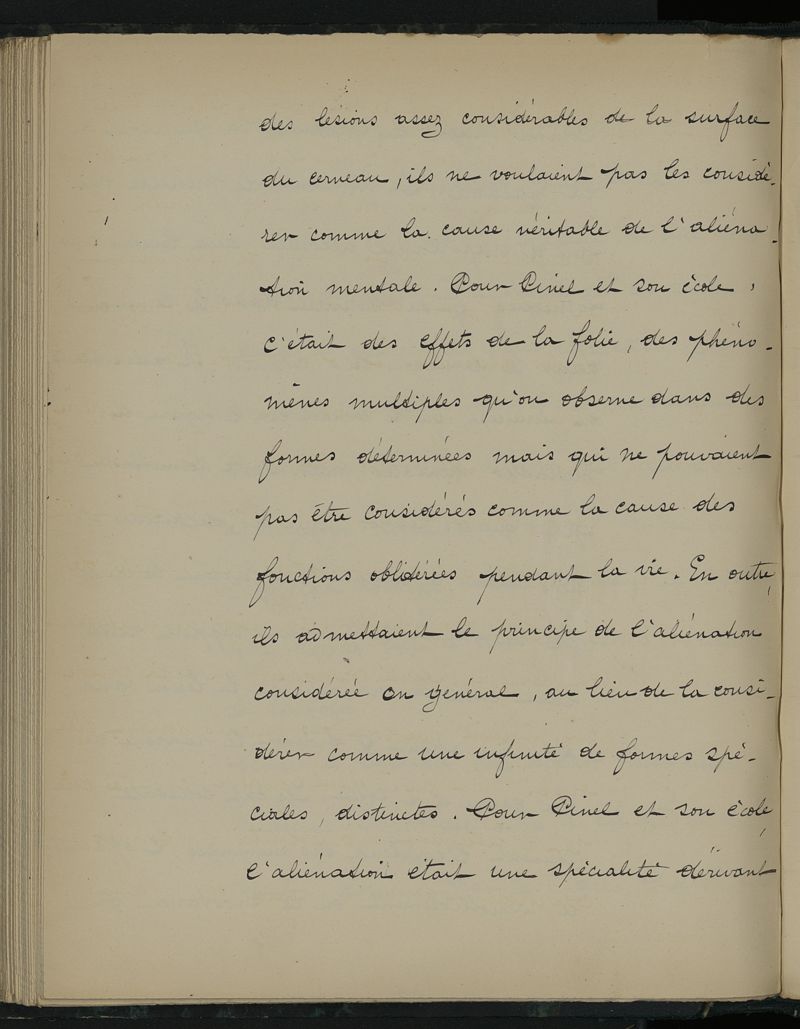 des lésions assez considérables de la surface
du cerveau, ils ne voulaient pas les considé-
rer comme la cause véritable de l'aliéna-
tion mentale. Pour Pinel et son école,
c'était des effets de la folie, des phéno-
mènes multiples qu'on observe dans des
formes déterminées mais qui ne pouvaient
pas être considérés comme la cause des
fonctions oblitérées pendant la vie. En outre,
ils admettaient le principe de l'aliénation
considérée en général, au lieu de la consi-
dérer comme une infinité de formes spé-
ciales, distinctes. Pour Pinel et son école,
l'aliénation était une spécialité dérivant